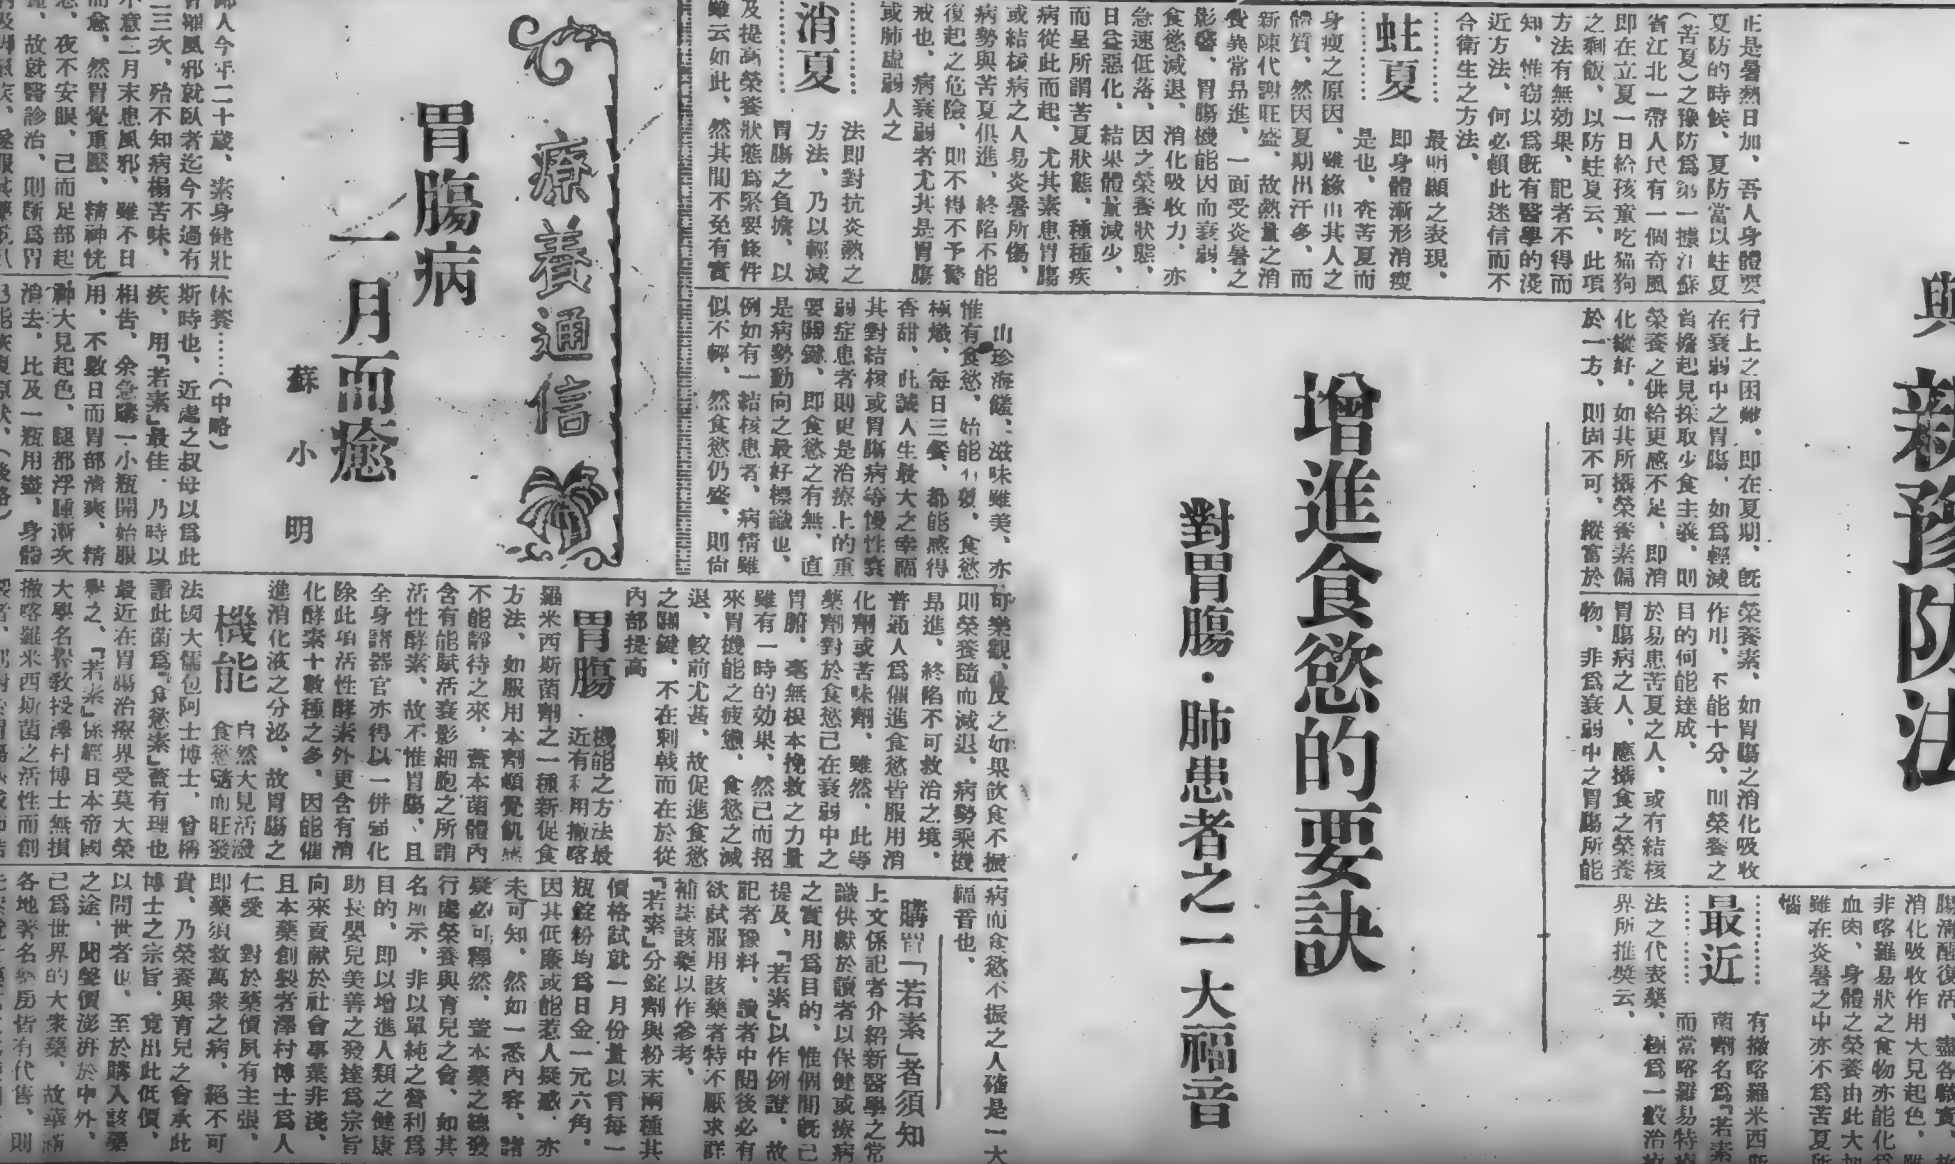 與
新豫防法
正是暑熱日加、吾人身體要
夏防的時候、夏防當以蛀夏
(苦夏)之豫防為第一據江蘇
省江北一帶人民有一個奇風
即在立夏一日給孩童吃猫狗
之剩飯、以防蛀夏云、此項
方法有無効果、記者不得而
知、惟窃以為既有醫學的淺
近方法、何必賴此迷信而不
合衛生之方法、
蛀夏
最明顯之表現、
即身體漸形消瘦
是也、在苦夏而
身瘦之原因、雖緣由其人之
體質、然因夏期出汗多、而
新陳代謝旺盛、故熱量之消
費異常昂進、一面受炎暑之
影響、胃腸機能因而衰弱、
食慾減退、消化吸收力、亦
急速低落、因之榮養狀態、
日益惡化、結果體量減少、
而呈所謂苦夏狀態、種種疾
病從此而起、尤其素患胃腸
或結核病之人易炎暑所傷、
病勢與苦夏俱進、終陷不能
復起之危險、則不得不予警
戒也、病衰弱者尤其是胃腸
或肺虛弱人之
消夏
法即對抗炎熱之
方法、乃以輕減
胃腸之負擔、以
及提高榮養狀態為緊要條件
雖云如此、然其間不免有實
行上之困難、即在夏期、既
在衰弱中之胃腸、如為輕減
負擔起見採取少食主義、則
榮養之供給更感不足、即消
化縱好、如其所攝榮養素偏
於一方、則固不可、縱富於
榮養素、如胃腸之消化吸收
作用、不能十分、則榮養之
目的何能達成、
於易患苦夏之人、或有結核
胃腸病之人、應攝食之榮養
物、非為衰弱中之胃腸所能
消化吸收作用大見起色、雖
非喀羅易狀之食物亦能化為
血肉、身體之榮養由此大加
雖在炎暑之中亦不為苦夏所
惱
最近
有撒喀羅米西斯
菌劑名為『若素
而當喀羅易特療
法之代表藥、極為一般治療
界所推獎云、
增進食慾的要訣
對胃腸·肺患者之一大福音
山珍海饈、滋味雖美、亦
惟有食慾、始能有效、食慾
極熾、每日三餐、都能感得
香甜、此誠人生最大之幸福
其對結核或胃腸病等慢性衰
弱症患者則更是治療上的重
要關鍵、即食慾之有無、直
是病勢動向之最好標識也、
例如有一結核患者、病情雖
似不輕、然食慾仍盛、則尚
可樂觀、反之如果飲食不振
則榮養隨而減退、病勢乘機
昂進、終陷不可救治之境、
普通人為催進食慾皆服用消
化劑或苦味劑、雖然、此等
藥劑對於食慾己在衰弱中之
胃腑、毫無根本挽救之力量
雖有一時的効果、然己而招
來胃機能之疲憊、食慾之減
退、較前尤甚、故促進食慾
之關鍵、不在刺戟而在於從
內部提高
胃腸
機能之方法最
近有利用撒喀
羅米西斯菌劑之一種新促食
方法、如服用本劑頓覺飢感
不能靜待之來、蓋本菌體內
含有能賦活衰影細胞之所謂
活性酵素、故不惟胃腸、且
全身諸器官亦得以一併強化
除此項活性酵素外更含有消
化酵素十數種之多、因能催
進消化液之分泌、故胃腸之
機能
自然大見活潑
食慾隨而旺發
法國大儒包阿士博士、曾稱
讚此菌為『食慾素』蓋有理也
最近在胃腸治療界受莫大榮
譽之、『若素』係經日本帝國
大學名譽敎授澤村博士無損
撒喀羅米西斯菌之活性而創
病而食慾不振之人確是一大
福音也、
購胃「若素」者須知
上文係記者介紹新醫學之常
識供獻於讀者以保健或療病
之實用為目的、惟個間既己
提及、『若素』以作例證、故
記者豫料、讀者中閱後必有
欲試服用該藥者特不厭求詳
補誌該藥以作參考、
『若素』分錠劑與粉末兩種其
價格試就一月份量以言每一
瓶錠粉均為日金一元六角、
因其低廉或能惹人疑惑、亦
未可知、然如一悉內容、諸
疑必可釋然、蓋本藥之總發
行處榮養與育兒之會、如其
名所示、非以單純之營利為
目的、即以增進人類之健康
助長嬰兒美善之發達為宗旨
向來貢獻於社會事業非淺、
且本藥創製者澤村博士為人
仁愛 對於藥價夙有主張、
即藥須救萬衆之病、絕不可
貴、乃榮養與育兒之會承此
博士之宗旨、竟出此低價、
以問世者也、至於購入該藥
之途、聞聲價澎湃於中外、
己為世界的大衆藥、故華滿
各地著名藥房皆有代售、則
療養通信
胃腸病
一月而癒
蘇小明
婦人今年二十歲、素身健壯
曾罹風邪就臥者迄今不過有
二三次、殆不知病褟苦味、
不意二月末患風邪、雖不日
而愈、然胃覺重壓、精神恍
惚、夜不安眠、己而足部起
腫、故就醫診治、則斷為胃
休養……(中略)
斯時也、近處之叔母以為此
疾、用『若素』最佳、乃時以
相告、余急購一小瓶開始服
用、不數日而胃部清爽、精
神大見起色、腿部浮腫漸次
消去、比及一瓶用盡、身體
己能恢復原狀、(後略)